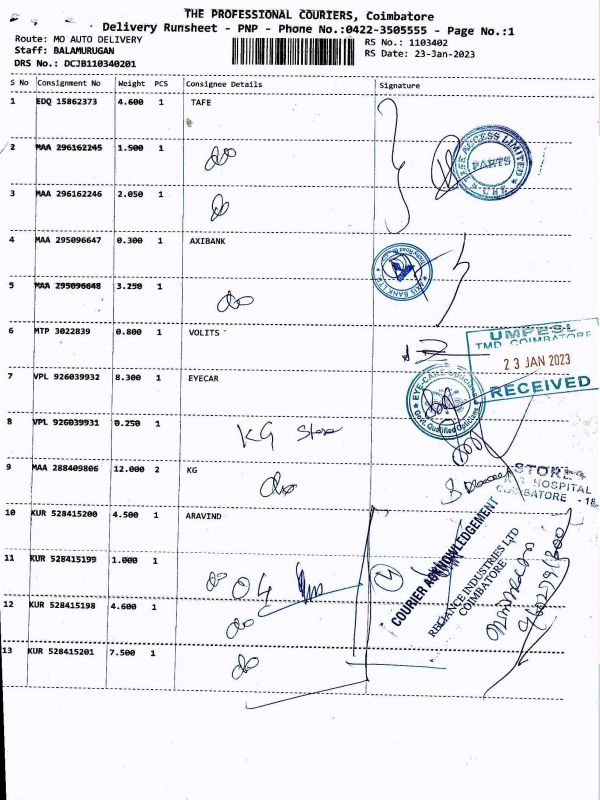 THE PROFESSIONAL COURIERS, Coimbatore
Delivery Runsheet - PNP - Phone No.:0422-3505555 - Page No.:1
Route: MO AUTO DELIVERY
RS No.: 1103402
Staff: BALAMURUGAN
RS Date: 23-Jan-2023
DRS No.: DCJB110340201
S No Consignment No Weight PCS Consignee Details Signature
1 EDQ 15862373 4.600 1 TAFE
2 MAA 296162245 1.500 1 do
3 MAA 296162246 2.050 1 do
ACCESS LIMITED
PARTS
4 MAA 295096647 0.300 1 AXIBANK
AXIS BANK LTD
5 MAA 295096648 3.250 1 do
6 MTP 3022839 0.800 1 VOLITS
UMPESL
TMD COIMBATORE
23 JAN 2023
RECEIVED
7 VPL 926039932 8.300 1 EYECAR
EYE-CARE Opticians
Govt. Qualified Opticians
8 VPL 926039931 0.250 1 KG Store
9 MAA 288409806 12.000 2 KG
do
STORES
K.G. HOSPITAL
COIMBATORE - 18
10 KUR 528415200 4.500 1 ARAVIND
11 KUR 528415199 1.000 1 do 04
4
COURIER ACKNOWLEDGEMENT
RELIANCE INDUSTRIES LTD
COIMBATORE
12 KUR 528415198 4.600 1 do
13 KUR 528415201 7.500 1 do